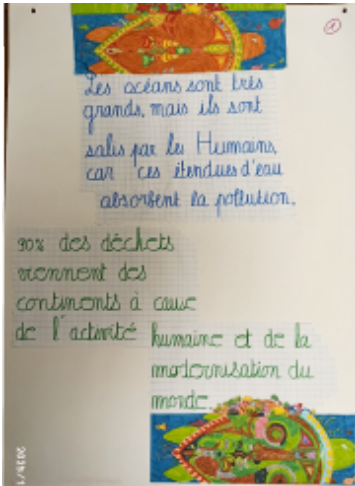 1
Les océans sont très
grands, mais ils sont
salis par les Humains,
car ces étendues d'eau
absorbent la pollution.
90% des déchets
viennent des
continents à cause
de l'activité humaine et de la
modernisation du
monde.